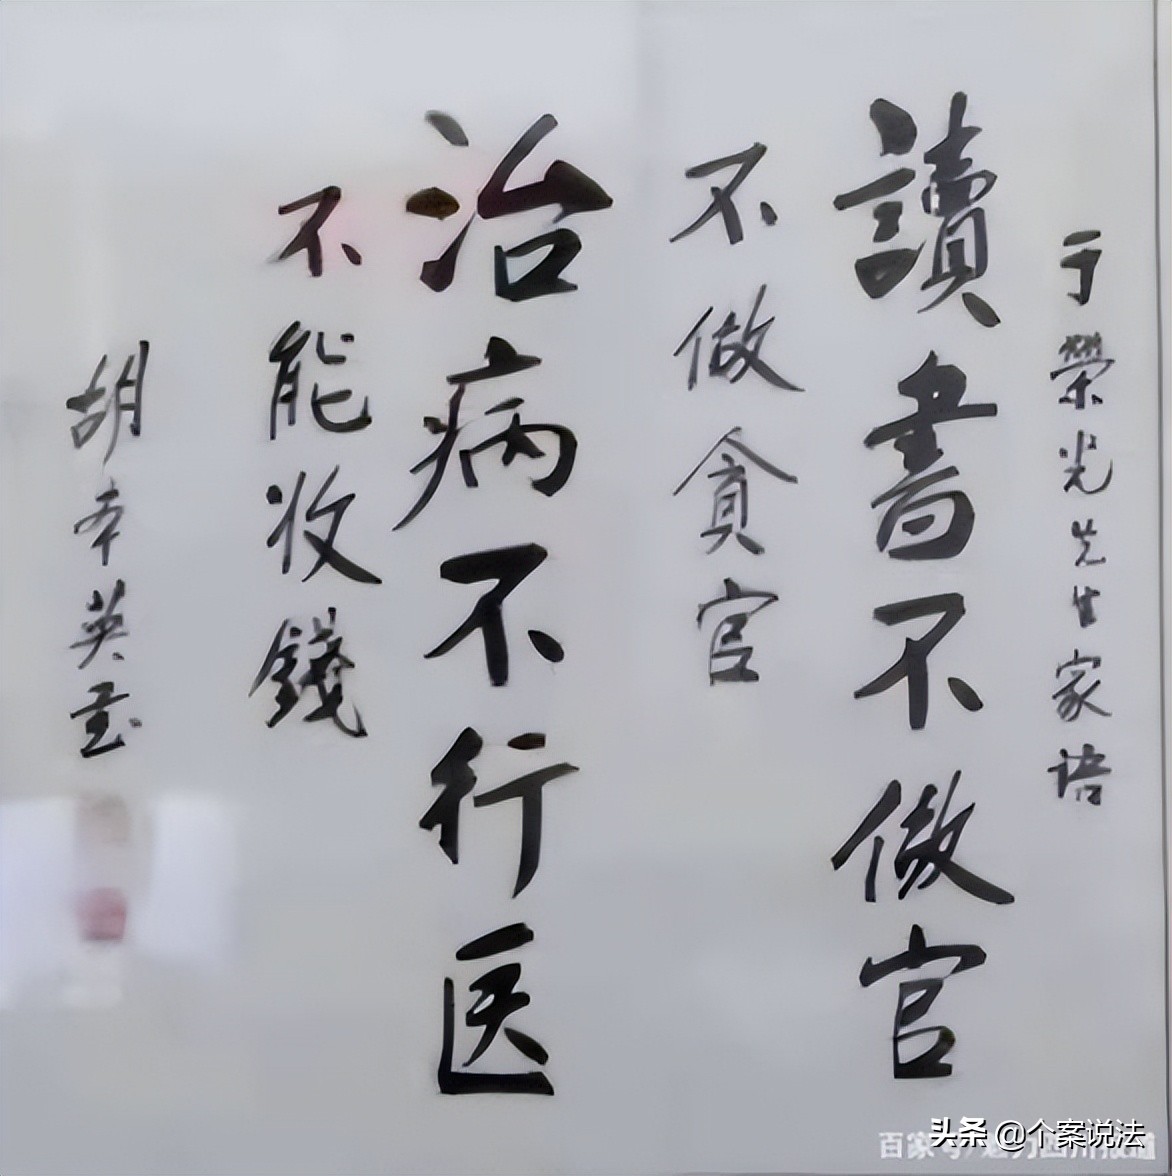 于榮光先生家语
讀書不做官
不做貪官
治病不行医
不能收錢
胡本英书
头条 @个案说法
百家号/魅力四川报道